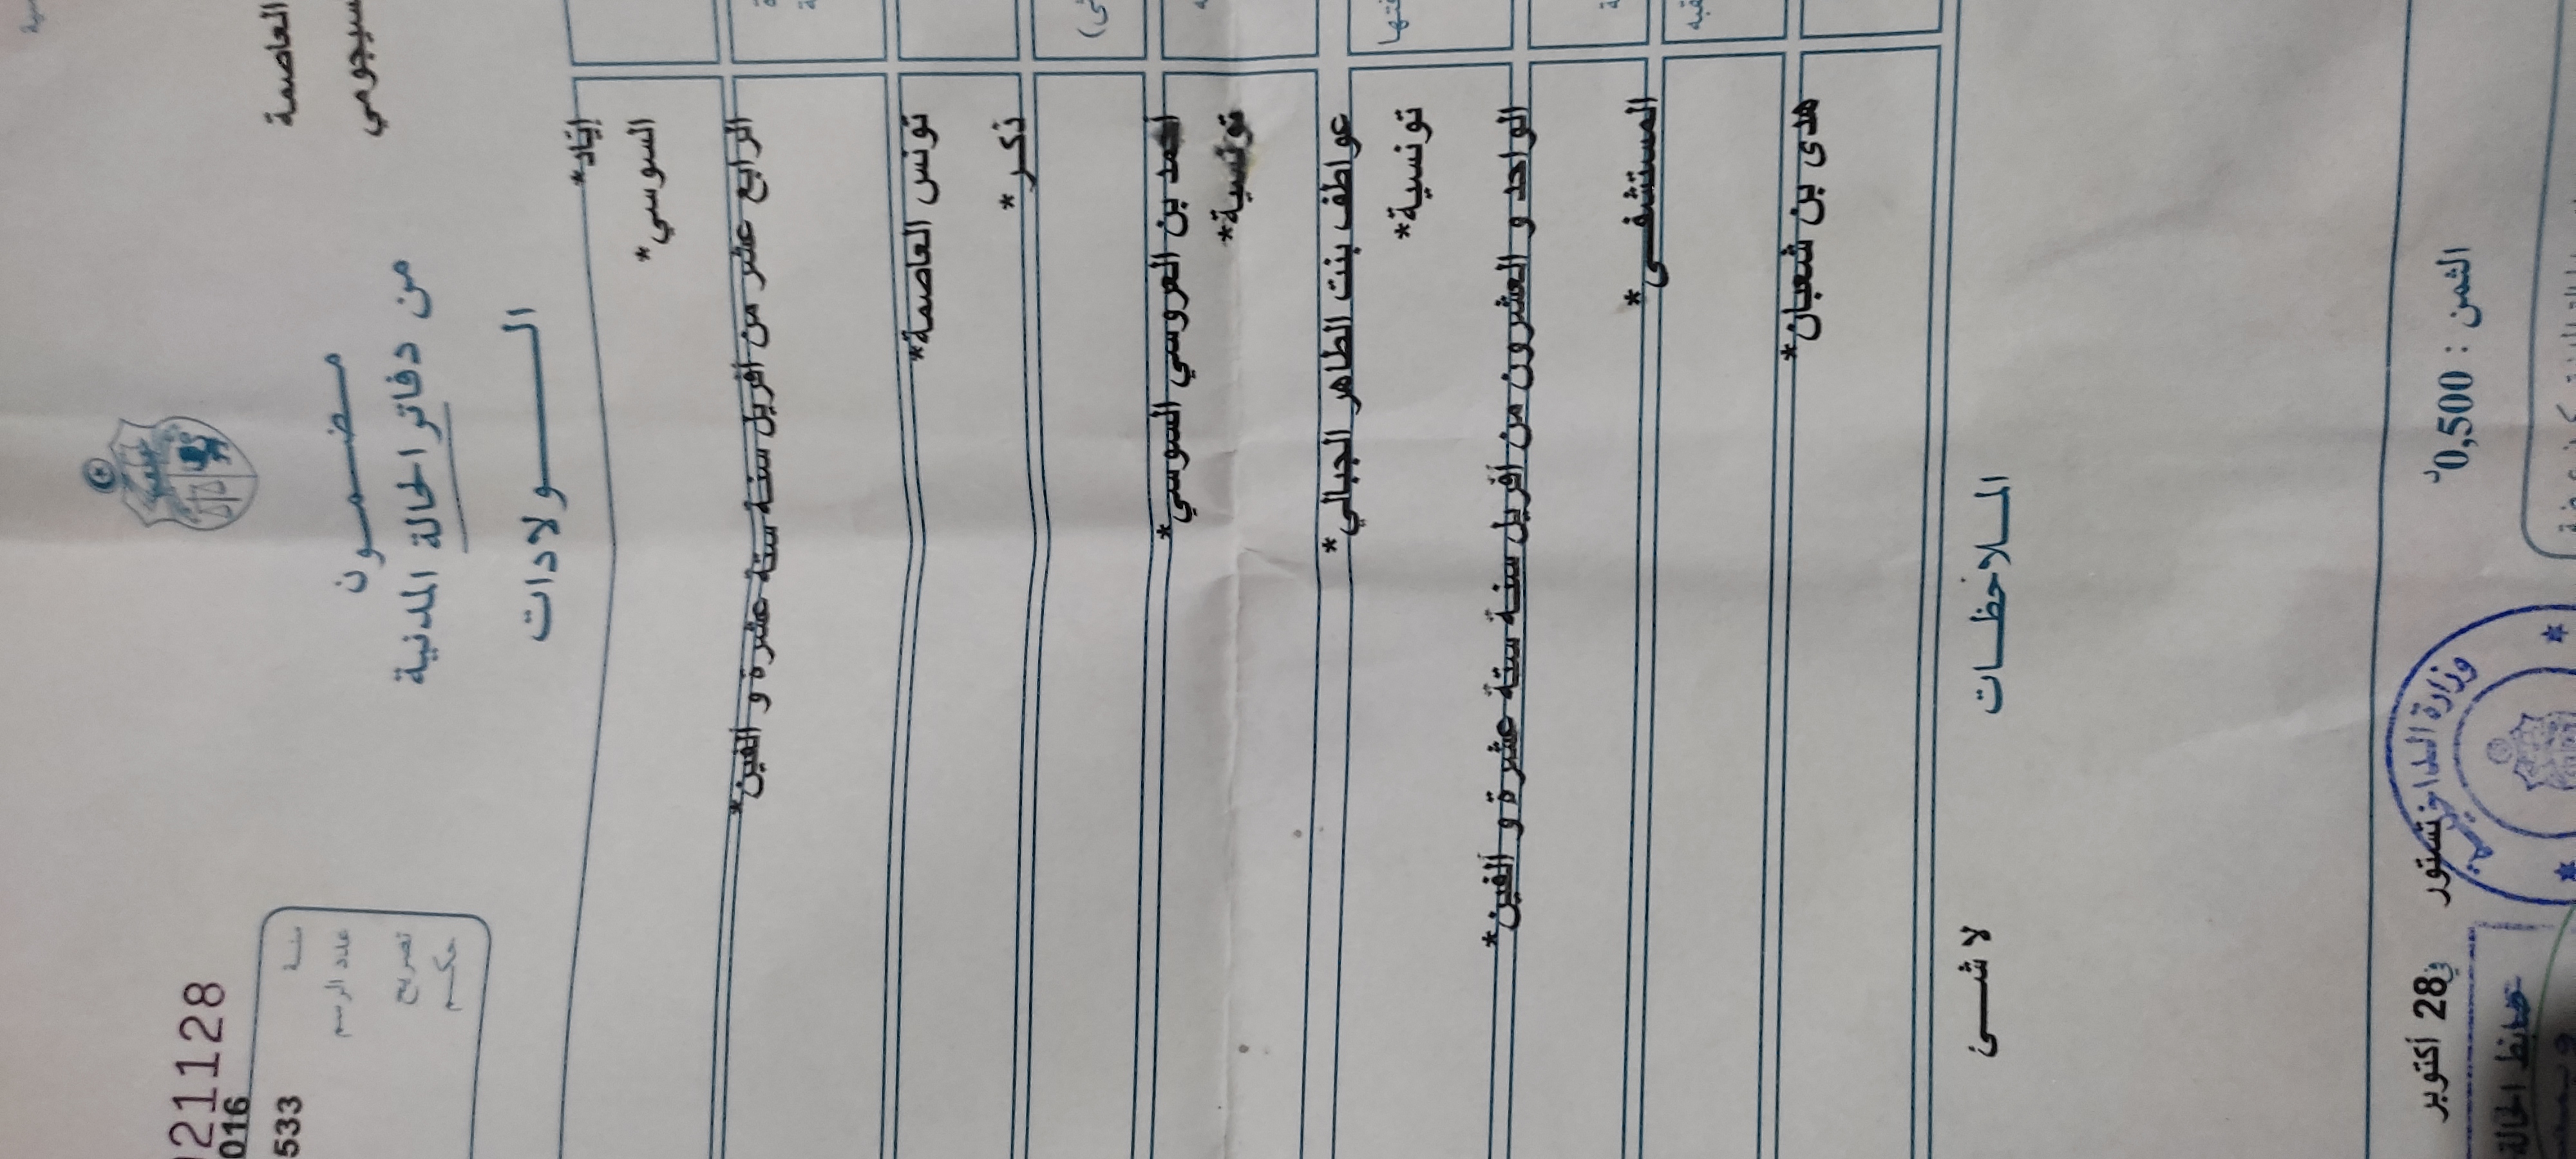 العاصمة
سيجومي
مضمون
من دفاتر الحالة المدنية
الولادات
21128
016
533
سنة
عدد الرسم
تصريح
حكم
إياد*
السوسي*
الرابع عشر من افريل سنة ستة عشرة و الفين*
تونس العاصمة*
ذكر*
احمد بن العروسي السوسي*
تونسية*
عواطف بنت الطاهر الجبالي*
تونسية*
الواحد و العشرون من افريل سنة ستة عشرة و الفين*
المستشفى*
هدى بن شعبان*
الملاحظات
لا شئ
الثمن : 0,500د
تستور في 28 أكتوبر
وزارة الداخلية
ضابط الحالة